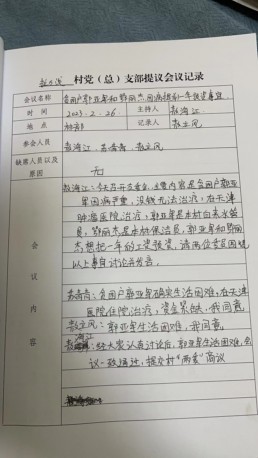 村党(总)支部提议会议记录
会议名称 贫困户郭亚军和鄂丽杰因病提前一年领资事宜
时间 2023.2.26 主持人 敖海江
地点 村部 记录人 敖立凤
参会人员 敖海江 苏希寿 敖立凤
缺席人员以及
原因 无
会议内容
敖海江:今天召开支委会,主要内容是贫困户郭亚
军因病严重,没钱无法治疗,在天津
肿瘤医院治疗,郭亚军是本村自来水管
员,鄂丽杰是本村保洁员,郭亚军和鄂丽
杰想把一年的工资预资,请两位委员围绕
以上事宜讨论并发言。
苏希寿:贫困户郭亚军确实生活困难,在天津
医院住院治疗,资金紧缺,我同意
敖立凤:郭亚军生活困难,我同意。
敖海江:经大家认真讨论后,郭亚军生活困难,会
议一致通过,提交村“两委”商议